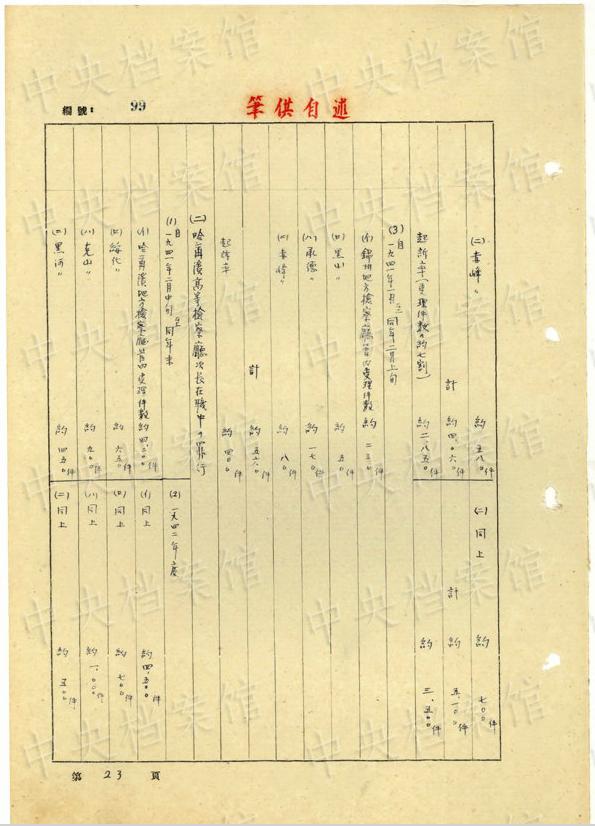 編號: 99
筆供自述
(二) 青峰〃 約 五八〇件
計 約 四、〇六〇件
起訴率(受理件数ノ約七割) 約 二、八五〇件
(3) 自一九四一年一月至同年二月上旬
(イ) 錦州地方檢察廳管内受理件数 約 二三〇
(ロ) 黑山〃 約 五〇
(ハ) 承德〃 約 一七〇
(ニ) 青峰〃 約 八〇
計 約 五六〇件
起訴率 約 四〇〇
(二) 哈爾濱高等檢察廳次長在職中ノ罪行
(1) 自一九四一年二月中旬至同年末
(イ) 哈爾濱地方檢察廳管内受理件数 約 四、二〇〇件
(ロ) 綏化〃 約 六五〇件
(ハ) 克山〃 約 九〇〇件
(ニ) 黑河〃 約 四五〇件
(二) 同上 約 七〇〇件
計 約 五、一〇〇件
約 三、五〇〇件
(2) 一九四二年度
(イ) 同上 約 四、五〇〇件
(ロ) 同上 約 七〇〇件
(ハ) 同上 約 一、〇〇〇件
(ニ) 同上 約 五〇〇件
第 23 頁
中央档案馆